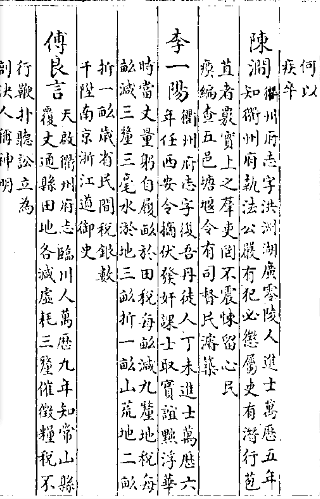 何以
疾卒
陳澗
衢州府志字洪洲湖廣零陵人進士萬厯五年
知衢州府執法公嚴有犯必懲屬吏有潛行苞
苴者覈實上之羣吏罔不震悚留心民
瘼編查五邑塘堰令有司督民濬築
李一陽
衢州府志字復吾丹徒人丁未進士萬厯六
年任西安令摘伏發奸課士取實誼黜浮華
時當丈量躬自履畝於田税每畝減九釐地税每
畝減三釐三毫水淤地三畝折一畝山荒地二畝
折一畝歲省民間税銀數
千陞南京浙江道御史
傅良言
天啟衢州府志臨川人萬厯九年知常山縣
覆丈通縣田地各減虛耗三釐催徵糧税不
行鞭扑聽訟立為
剖決人稱神明